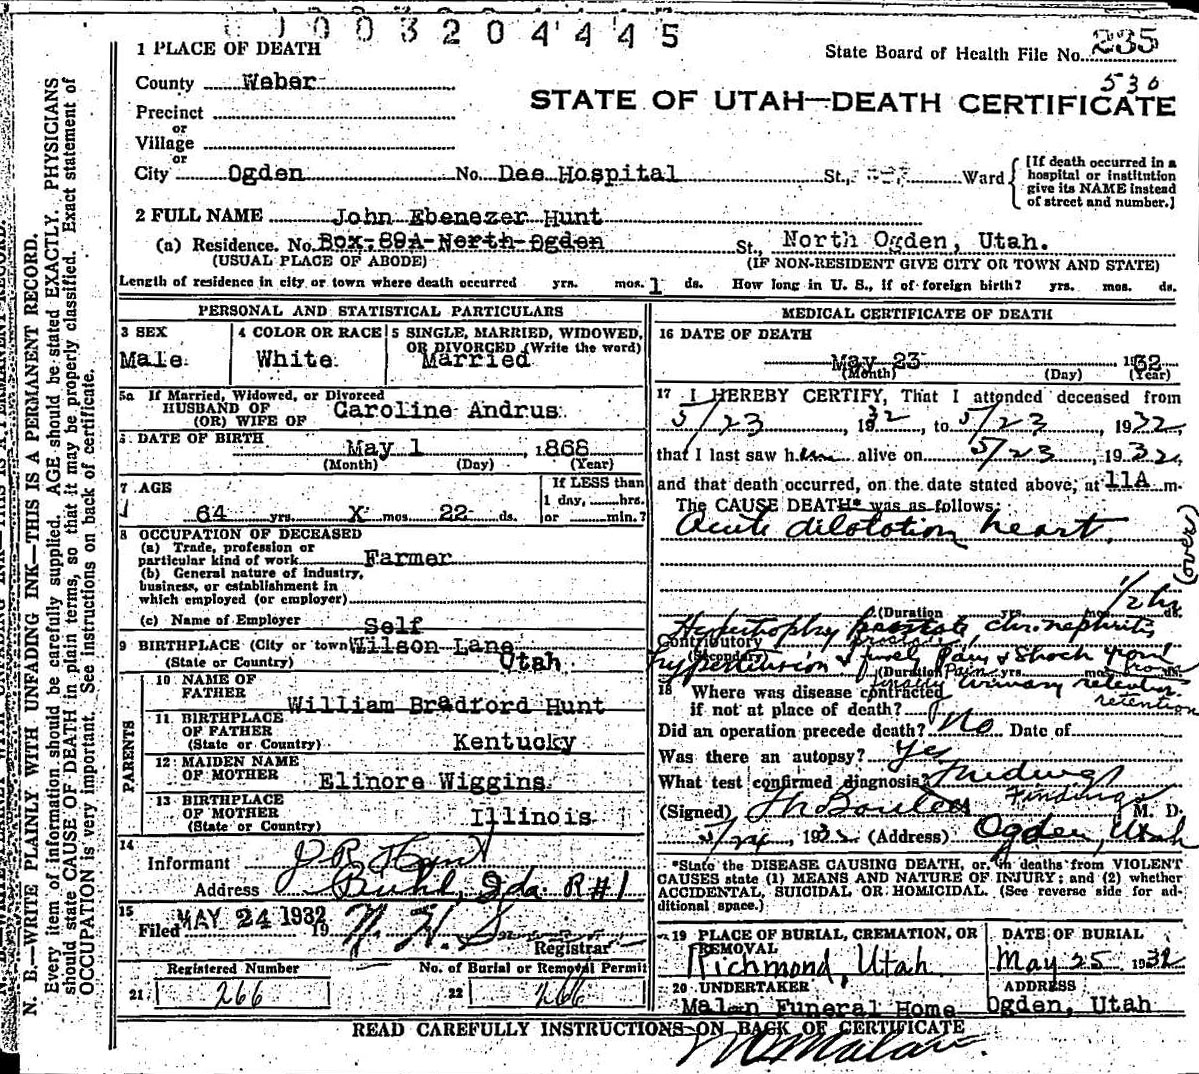 1003204445
1 PLACE OF DEATH
State Board of Health File No. 235
530
County Weber
STATE OF UTAH—DEATH CERTIFICATE
Precinct
or
Village
or
City Ogden No. Dee Hospital St., Ward
[If death occurred in a hospital or institution give its NAME instead of street and number.]
2 FULL NAME John Ebenezer Hunt
(a) Residence. No. Box 89A North Ogden St., North Ogden, Utah.
(USUAL PLACE OF ABODE) (IF NON-RESIDENT GIVE CITY OR TOWN AND STATE)
Length of residence in city or town where death occurred yrs. mos. 1 ds. How long in U. S., if of foreign birth? yrs. mos. ds.
PERSONAL AND STATISTICAL PARTICULARS
3 SEX
Male
4 COLOR OR RACE
White
5 SINGLE, MARRIED, WIDOWED, OR DIVORCED (Write the word)
Married
5a If Married, Widowed, or Divorced
HUSBAND OF
(OR) WIFE OF Caroline Andrus
6 DATE OF BIRTH
May 1, 1868
(Month) (Day) (Year)
7 AGE
64 yrs. X mos. 22 ds.
If LESS than
1 day, hrs.
or min.?
8 OCCUPATION OF DECEASED
(a) Trade, profession or
particular kind of work Farmer
(b) General nature of industry,
business, or establishment in
which employed (or employer)
(c) Name of Employer Self
9 BIRTHPLACE (City or town) Wilson Lane
(State or Country) Utah
PARENTS
10 NAME OF
FATHER
William Bradford Hunt
11 BIRTHPLACE
OF FATHER
(State or Country) Kentucky
12 MAIDEN NAME
OF MOTHER Elinore Wiggins
13 BIRTHPLACE
OF MOTHER
(State or Country) Illinois
14
Informant J R Hunt
Address Buhl, Ida R#1
15
Filed MAY 24 1932 19
Registrar
Registered Number
21 266
No. of Burial or Removal Permit
22 266
MEDICAL CERTIFICATE OF DEATH
16 DATE OF DEATH
May 23 1932
(Month) (Day) (Year)
17 I HEREBY CERTIFY, That I attended deceased from
5/23, 1932, to 5/23, 1932,
that I last saw him alive on 5/23, 1932,
and that death occurred, on the date stated above, at 11A m.
The CAUSE DEATH* was as follows:
Acute dilotation heart.
(over)
1/2 hr
(Duration yrs. mos. ds.
Hypertrophy prostate, chr. nephritis,
Contributory prostate
(Secondary)
hypertension & Pain & Shock from
(Duration Pain yrs. mos. from ds.
urinary retention
retention
18 Where was disease contracted
if not at place of death?
Did an operation precede death? No Date of
Was there an autopsy? Yes
What test confirmed diagnosis? Findings
Findings
(Signed) M. D.
5/24, 1932 (Address) Ogden, Utah
*State the DISEASE CAUSING DEATH, or, in deaths from VIOLENT
CAUSES state (1) MEANS AND NATURE OF INJURY; and (2) whether
ACCIDENTAL, SUICIDAL OR HOMICIDAL. (See reverse side for ad-
ditional space.)
19 PLACE OF BURIAL, CREMATION, OR
REMOVAL
Richmond, Utah.
DATE OF BURIAL
May 25 1932
20 UNDERTAKER
Malan Funeral Home
ADDRESS
Ogden, Utah
READ CAREFULLY INSTRUCTIONS ON BACK OF CERTIFICATE
Malan.
N. B.—WRITE PLAINLY WITH UNFADING INK—THIS IS A PERMANENT RECORD.
Every item of information should be carefully supplied. AGE should be stated EXACTLY. PHYSICIANS
should state CAUSE OF DEATH in plain terms, so that it may be properly classified. Exact statement of
OCCUPATION is very important. See instructions on back of certificate.